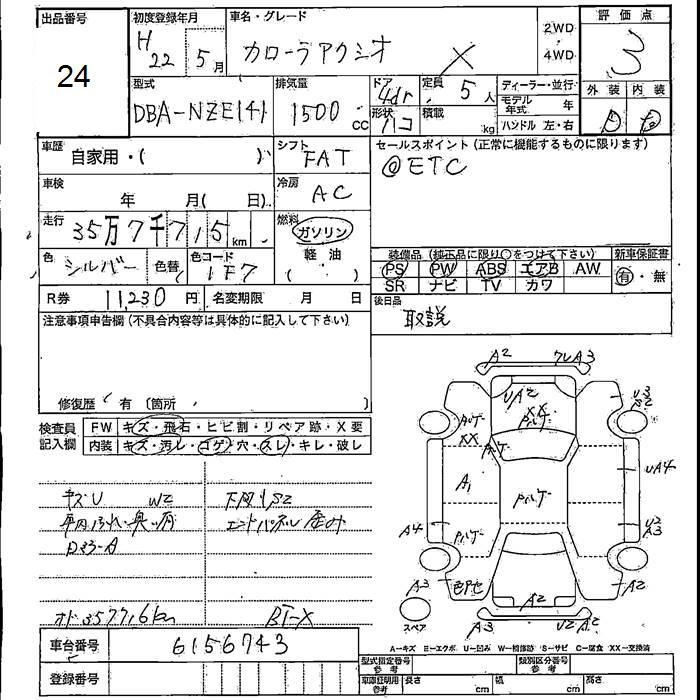 出品番号
24
初度登録年月
H22 5月
車名・グレード
カローラアクシオ X
2WD
4WD
評価点
3
外装 内装
D D
型式
DBA-NZE141
排気量
1500cc
ドア
4dr
形状
ハコ
定員
5人
積載
kg
ディーラー・並行
モデル年式 年
ハンドル 左・右
車歴
自家用・( )
シフト
FAT
車検
年 月( 日)
冷房
AC
走行
35万7千715km
燃料
ガソリン
軽油
( )
色
シルバー
色替
色コード
1F7
R券 11,230円
名変期限 月 日
セールスポイント (正常に機能するものに限ります)
◎ETC
装備品 (純正品に限り○をつけて下さい)
PS PW ABS エアB AW
SR ナビ TV カワ
新車保証書
有・無
後日品
取説
注意事項申告欄 (不具合内容等は具体的に記入して下さい)
修復歴 有 〔箇所 〕
検査員記入欄
FW キズ・飛石・ヒビ割・リペア跡・X要
内装 キズ・汚レ・コゲ・穴・スレ・キレ・破し
キズU W2
下廻りS2
エンドパネル歪み
オド357716km
BT-X
車台番号 6156743
登録番号
A2 フレA3
UA2
XX
パルケ
XX
A1
パルケ
パルケ
A4
A3
A2
A2
A3
U2 A2
UA4
U2
A3
スペア
A-キズ E-エクボ U-凹み W-補修跡 S-サビ C-腐食 XX-交換済
型式指定番号 参考
類別区分番号 参考
車庫証明用 参考 長さ cm 幅 cm 高さ cm